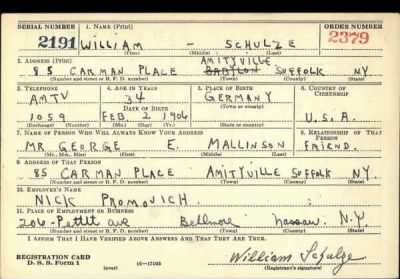 SERIAL NUMBER 1. NAME (Print) ORDER NUMBER
2191 WILLIAM - SCHULZE 2379
(First) (Middle) (Last)
2. ADDRESS (Print) AMITYVILLE
85 CARMAN PLACE BABYLON SUFFOLK NY.
(Number and street or R. F. D. number) (Town) (County) (State)
3. TELEPHONE 4. AGE IN YEARS 5. PLACE OF BIRTH 6. COUNTRY OF CITIZENSHIP
AMTV 34 GERMANY
DATE OF BIRTH (Town or county)
1059 FEB 2 1906 U.S.A.
(Exchange) (Number) (Mo.) (Day) (Yr.) (State or country)
7. NAME OF PERSON WHO WILL ALWAYS KNOW YOUR ADDRESS 8. RELATIONSHIP OF THAT PERSON
MR GEORGE E. MALLINSON FRIEND.
(Mr., Mrs., Miss) (First) (Middle) (Last)
9. ADDRESS OF THAT PERSON
85 CARMAN PLACE AMITYVILLE SUFFOLK NY.
(Number and street or R. F. D. number) (Town) (County) (State)
10. EMPLOYER'S NAME
NICK PROMOVICH.
11. PLACE OF EMPLOYMENT OR BUSINESS
206- Pettit ave Bellmore Nassau. N.Y.
(Number and street or R. F. D. number) (Town) (County) (State)
I AFFIRM THAT I HAVE VERIFIED ABOVE ANSWERS AND THAT THEY ARE TRUE.
REGISTRATION CARD
D. S. S. Form 1 (over) 16-17105 William Schulze
(Registrant's signature)